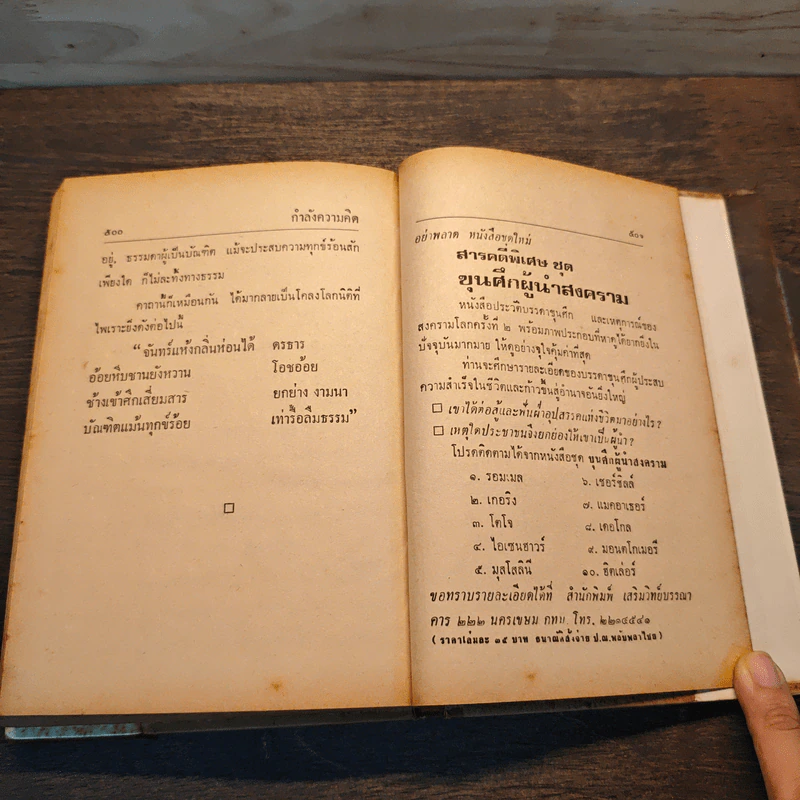 ๕๐๐
กำลังความคิด
อยู่. ธรรมดาผู้เป็นบัณฑิต แม้จะประสบความทุกข์ร้อนสัก
เพียงใด ก็ไม่ละทิ้งทางธรรม
คาถานี้ก็เหมือนกัน ได้มากลายเป็นโคลงโลกนิติที่
ไพเราะยิ่งดังต่อไปนี้
“จันทร์แห้งกลิ่นห่อนได้ ดรธาร
อ้อยหีบชานยังหวาน โอชอ้อย
ช้างเข้าศึกเสี่ยมสาร ยกย่าง งามนา
บัณฑิตแม้นทุกข์ร้อย เท่ารื้อลืมธรรม”
๕๐๑
อย่าพลาด หนังสือชุดใหม่
สารคดีพิเศษ ชุด
ขุนศึกผู้นำสงคราม
หนังสือประวัติบรรดาขุนศึก และเหตุการณ์ของ
สงครามโลกครั้งที่ ๒ พร้อมภาพประกอบที่หาดูได้ยากยิ่งใน
ปัจจุบันมากมาย ให้ดูอย่างจุใจคุ้มค่าที่สุด
ท่านจะศึกษารายละเอียดของบรรดาขุนศึกผู้ประสบ
ความสำเร็จในชีวิตและก้าวขึ้นสู่อำนาจอันยิ่งใหญ่
☐ เขาได้ต่อสู้และฟันฝ่าอุปสรรคแห่งชีวิตมาอย่างไร ?
☐ เหตุใดประชาชนจึงยกย่องให้เขาเป็นผู้นำ ?
โปรดติดตามได้จากหนังสือชุด ขุนศึกผู้นำสงคราม
๑. รอมเมล ๖. เชอร์ชิลล์
๒. เกอริง ๗. แมคอาเธอร์
๓. โตโจ ๘. เดอโกล
๔. ไอเซนฮาวร์ ๙. มอนตโกเมอรี่
๕. มุสโสลินี ๑๐. ฮิตเล่อร์
ขอทราบรายละเอียดได้ที่ สำนักพิมพ์ เสริมวิทย์บรรณา
คาร ๒๒๒ นครเขษม กทม โทร. ๒๒๑๔๕๔๑
( ราคาเล่มละ ๑๕ บาท ธนาณัติสั่งจ่าย ป.ณ.พลับพลาไชย )